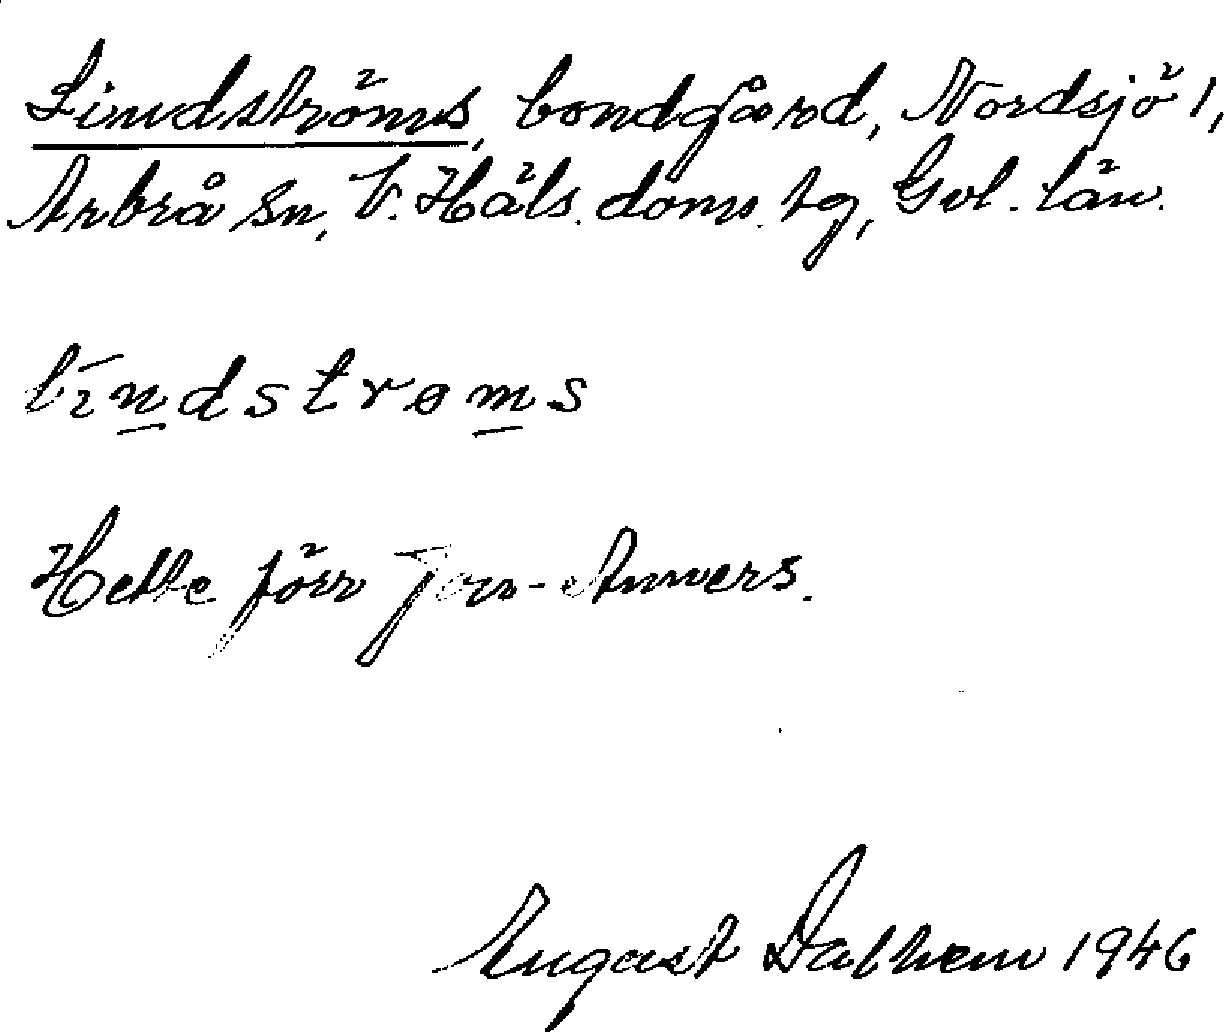 Lindströms, bondgård, Nordsjö 1,
Arbrå sn, V. Häls. doms. tg, Gvl. län.
lindstrøms
Hette förr Jon-Anders.
August Dalhem 1946